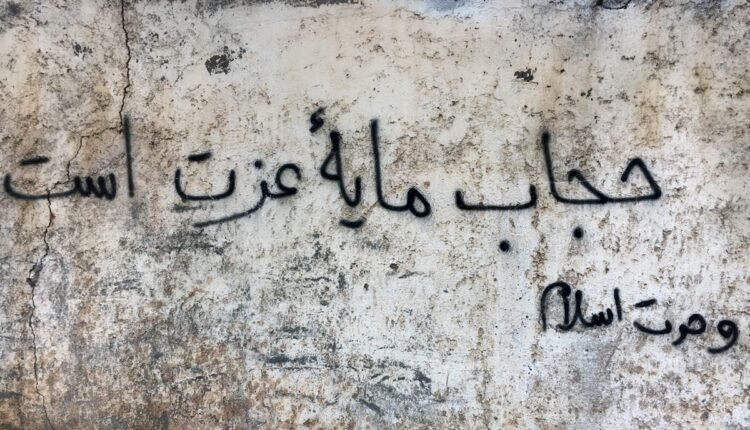 حجاب مایهٔ عزت است
وحدت اسلام